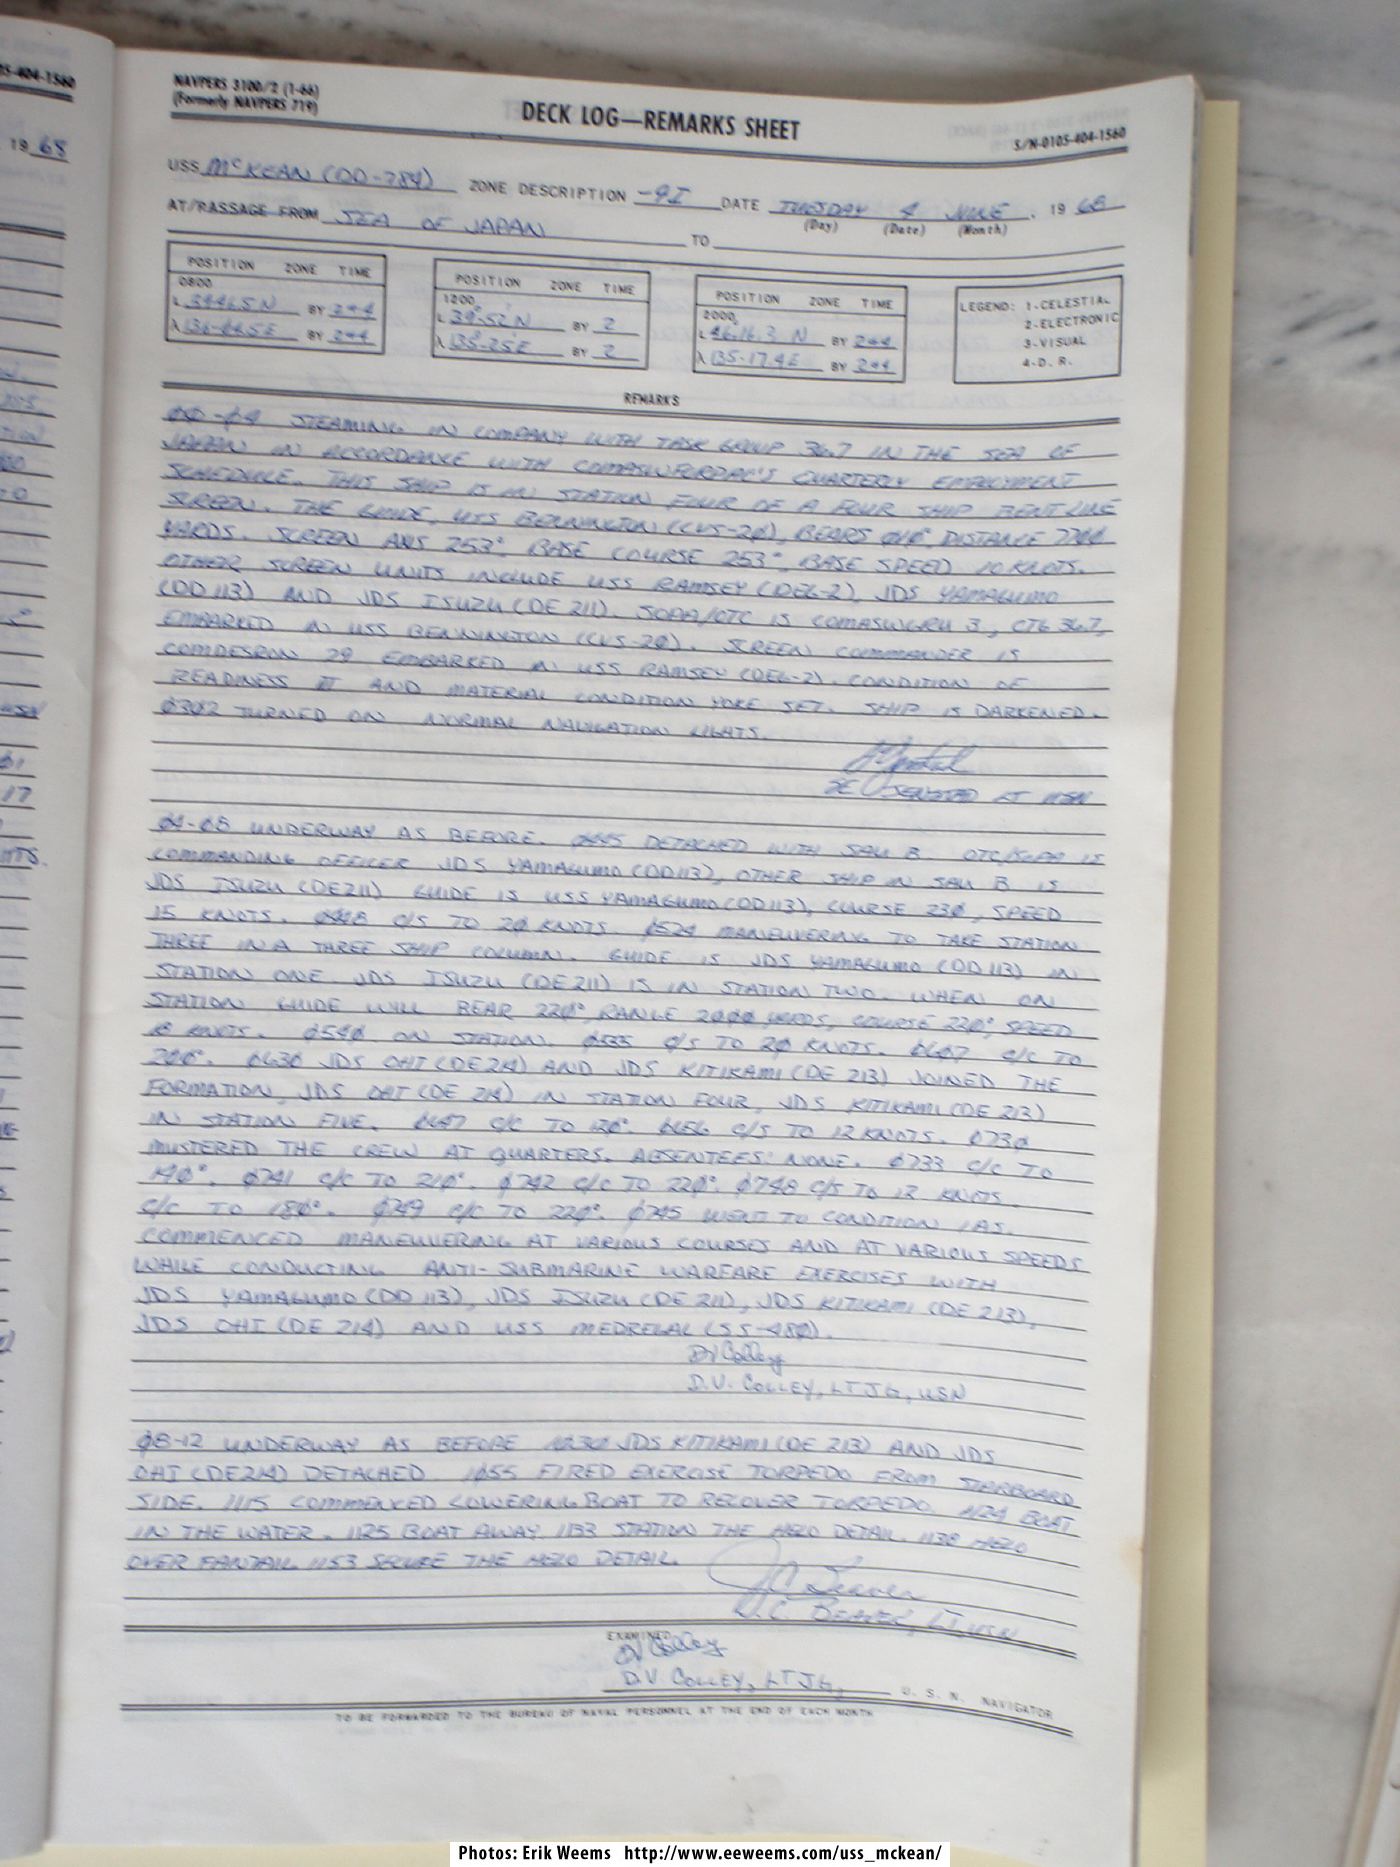 05-404-1560
19 68
NAVPERS 3100/2 (1-66)
(Formerly NAVPERS 719)
DECK LOG—REMARKS SHEET
S/N-0105-404-1560
USS McKEAN (DD-784) ZONE DESCRIPTION -9I DATE TUESDAY 4 JUNE, 19 68
(Day) (Date) (Month)
AT/PASSAGE FROM SEA OF JAPAN TO
POSITION ZONE TIME
0800
L BY 2+4
λ BY 2+4
POSITION ZONE TIME
1200
L 39°-52'N BY 2
λ 135°-25'E BY 2
POSITION ZONE TIME
2000
L BY 2+4
λ 135-17.4E BY 2+4
LEGEND: 1-CELESTIAL
2-ELECTRONIC
3-VISUAL
4-D. R.
REMARKS
ØØ-Ø4 STEAMING IN COMPANY WITH TASK GROUP 36.7 IN THE SEA OF
JAPAN IN ACCORDANCE WITH COMASWFORPAC'S QUARTERLY EMPLOYMENT
SCHEDULE. THIS SHIP IS IN STATION FOUR OF A FOUR SHIP BENT LINE
SCREEN. THE GUIDE, USS BENNINGTON (CVS-2Ø), BEARS DISTANCE
YARDS. SCREEN AXIS 253°, BASE COURSE 253°, BASE SPEED 10 KNOTS.
OTHER SCREEN UNITS INCLUDE USS RAMSEY (DEG-2), JDS YAMAGUMO
(DD 113) AND JDS ISUZU (DE 211). SOPA/OTC IS COMASWGRU 3, CTG 36.7,
EMBARKED IN USS BENNINGTON (CVS-2Ø). SCREEN COMMANDER IS
COMDESRON 29 EMBARKED IN USS RAMSEY (DEG-2). CONDITION OF
READINESS III AND MATERIAL CONDITION YOKE SET. SHIP IS DARKENED.
Ø3Ø2 TURNED ON NORMAL NAVIGATION LIGHTS.
JENSTAD LT USN
Ø4-Ø8 UNDERWAY AS BEFORE. Ø445 DETACHED WITH SAU B. OTC/SOPA IS
COMMANDING OFFICER JDS YAMAGUMO (DD113), OTHER SHIP IN SAU B IS
JDS ISUZU (DE211) GUIDE IS USS YAMAGUMO (DD113), COURSE 23Ø, SPEED
15 KNOTS. Ø448 C/S TO 2Ø KNOTS. Ø524 MANEUVERING TO TAKE STATION
THREE IN A THREE SHIP COLUMN. GUIDE IS JDS YAMAGUMO (DD 113) IN
STATION ONE JDS ISUZU (DE211) IS IN STATION TWO. WHEN ON
STATION GUIDE WILL BEAR 22Ø°, RANGE 2ØØØ YARDS, COURSE 22Ø°, SPEED
18 KNOTS. Ø54Ø ON STATION. Ø555 C/S TO 2Ø KNOTS. Ø6Ø7 C/C TO
2ØØ°. Ø63Ø JDS OHI (DE214) AND JDS KITIKAMI (DE 213) JOINED THE
FORMATION, JDS OHI (DE 214) IN STATION FOUR, JDS KITIKAMI (DE 213)
IN STATION FIVE. Ø647 C/C TO Ø656 C/S TO 12 KNOTS. Ø73Ø
MUSTERED THE CREW AT QUARTERS. ABSENTEES: NONE. Ø733 C/C TO
19Ø°. Ø741 C/C TO 21Ø°. Ø742 C/C TO 22Ø°. Ø748 C/S TO 12 KNOTS
C/C TO 18Ø°. Ø749 C/C TO 22Ø°. Ø745 WENT TO CONDITION 1AS.
COMMENCED MANEUVERING AT VARIOUS COURSES AND AT VARIOUS SPEEDS
WHILE CONDUCTING ANTI-SUBMARINE WARFARE EXERCISES WITH
JDS YAMAGUMO (DD 113), JDS ISUZU (DE 211), JDS KITIKAMI (DE 213),
JDS OHI (DE 214) AND USS MEDREGAL (SS-48Ø).
DV Colley
D.V. COLLEY, LTJG, USN
Ø8-12 UNDERWAY AS BEFORE 1Ø3Ø JDS KITIKAMI (DE 213) AND JDS
OHI (DE214) DETACHED 1Ø55 FIRED EXERCISE TORPEDO FROM STARBOARD
SIDE. 1115 COMMENCED LOWERING BOAT TO RECOVER TORPEDO. 1124 BOAT
IN THE WATER. 1125 BOAT AWAY. 1133 STATION THE HELO DETAIL. 1138 HELO
OVER FANTAIL 1153 SECURE THE HELO DETAIL.
JC Beaver
J.C. BEAVER, LT, USN
EXAMINED
DV Colley
D.V. COLLEY, LTJG, U. S. N. NAVIGATOR
TO BE FORWARDED TO THE BUREAU OF NAVAL PERSONNEL AT THE END OF EACH MONTH
Photos: Erik Weems http://www.eeweems.com/uss_mckean/